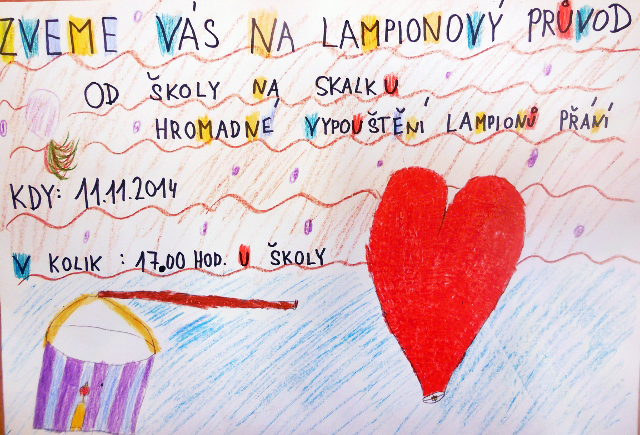 ZVEME VÁS NA LAMPIONOVÝ PRŮVOD
OD ŠKOLY NA SKALKU
HROMADNÉ VYPOUŠTĚNÍ LAMPIONŮ PŘÁNÍ
KDY: 11.11.2014
V KOLIK : 17.00 HOD. U ŠKOLY